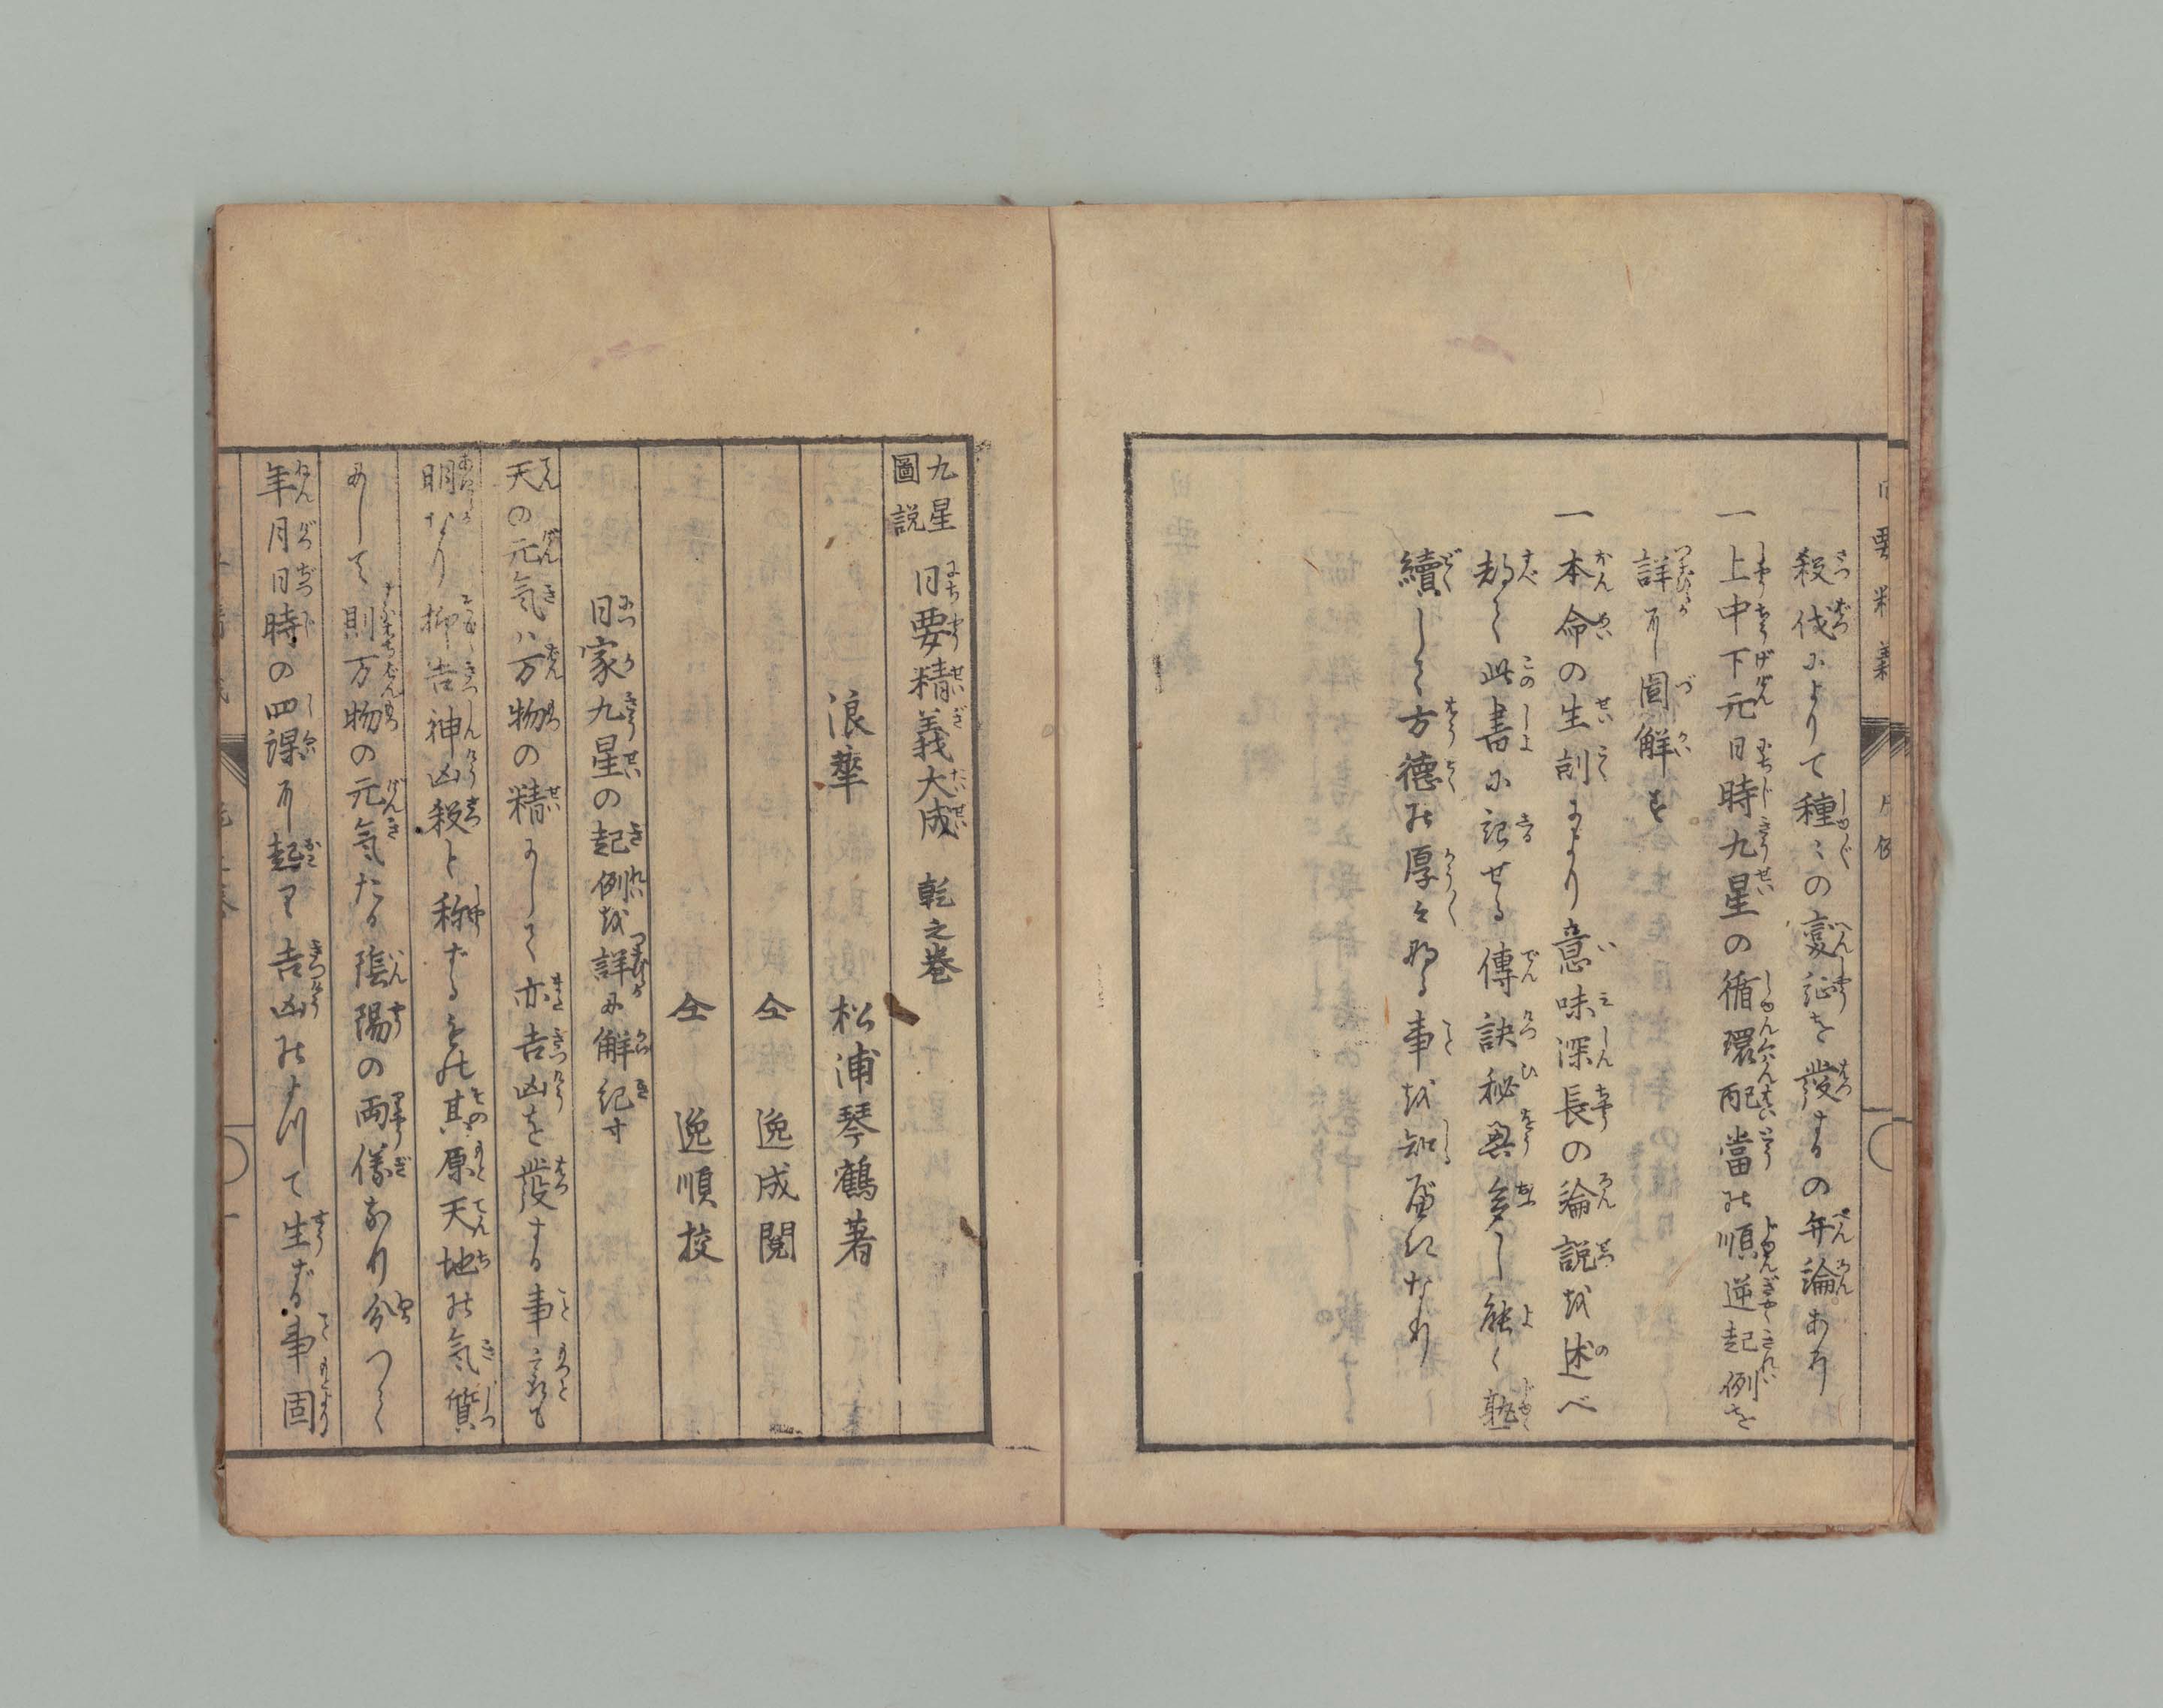 殺伐によりて種〻の変証を發するの弁論あり
一上中下元日時九星の循環配當の順逆起例を
詳に圖解す
一本命の生尅により意味深長の論説を述べ
都て此書に記せる傳訣秘奥多し能く熟
續して方徳の厚々なる事を知るべきなり
九星圖説 日要精義大成 乾之巻
浪華 松浦琴鶴著
仝 逸成閲
仝 逸順挍
日家九星の起例を詳に解紀す
天の元気ハ万物の精にして亦吉凶を發する事最も
明なり抑吉神凶殺と称ずるもの其原天地の気質
にして則万物の元気たる陰陽の両儀なり分つて
年月日時の四課に起り吉凶のよつて生ずる事固